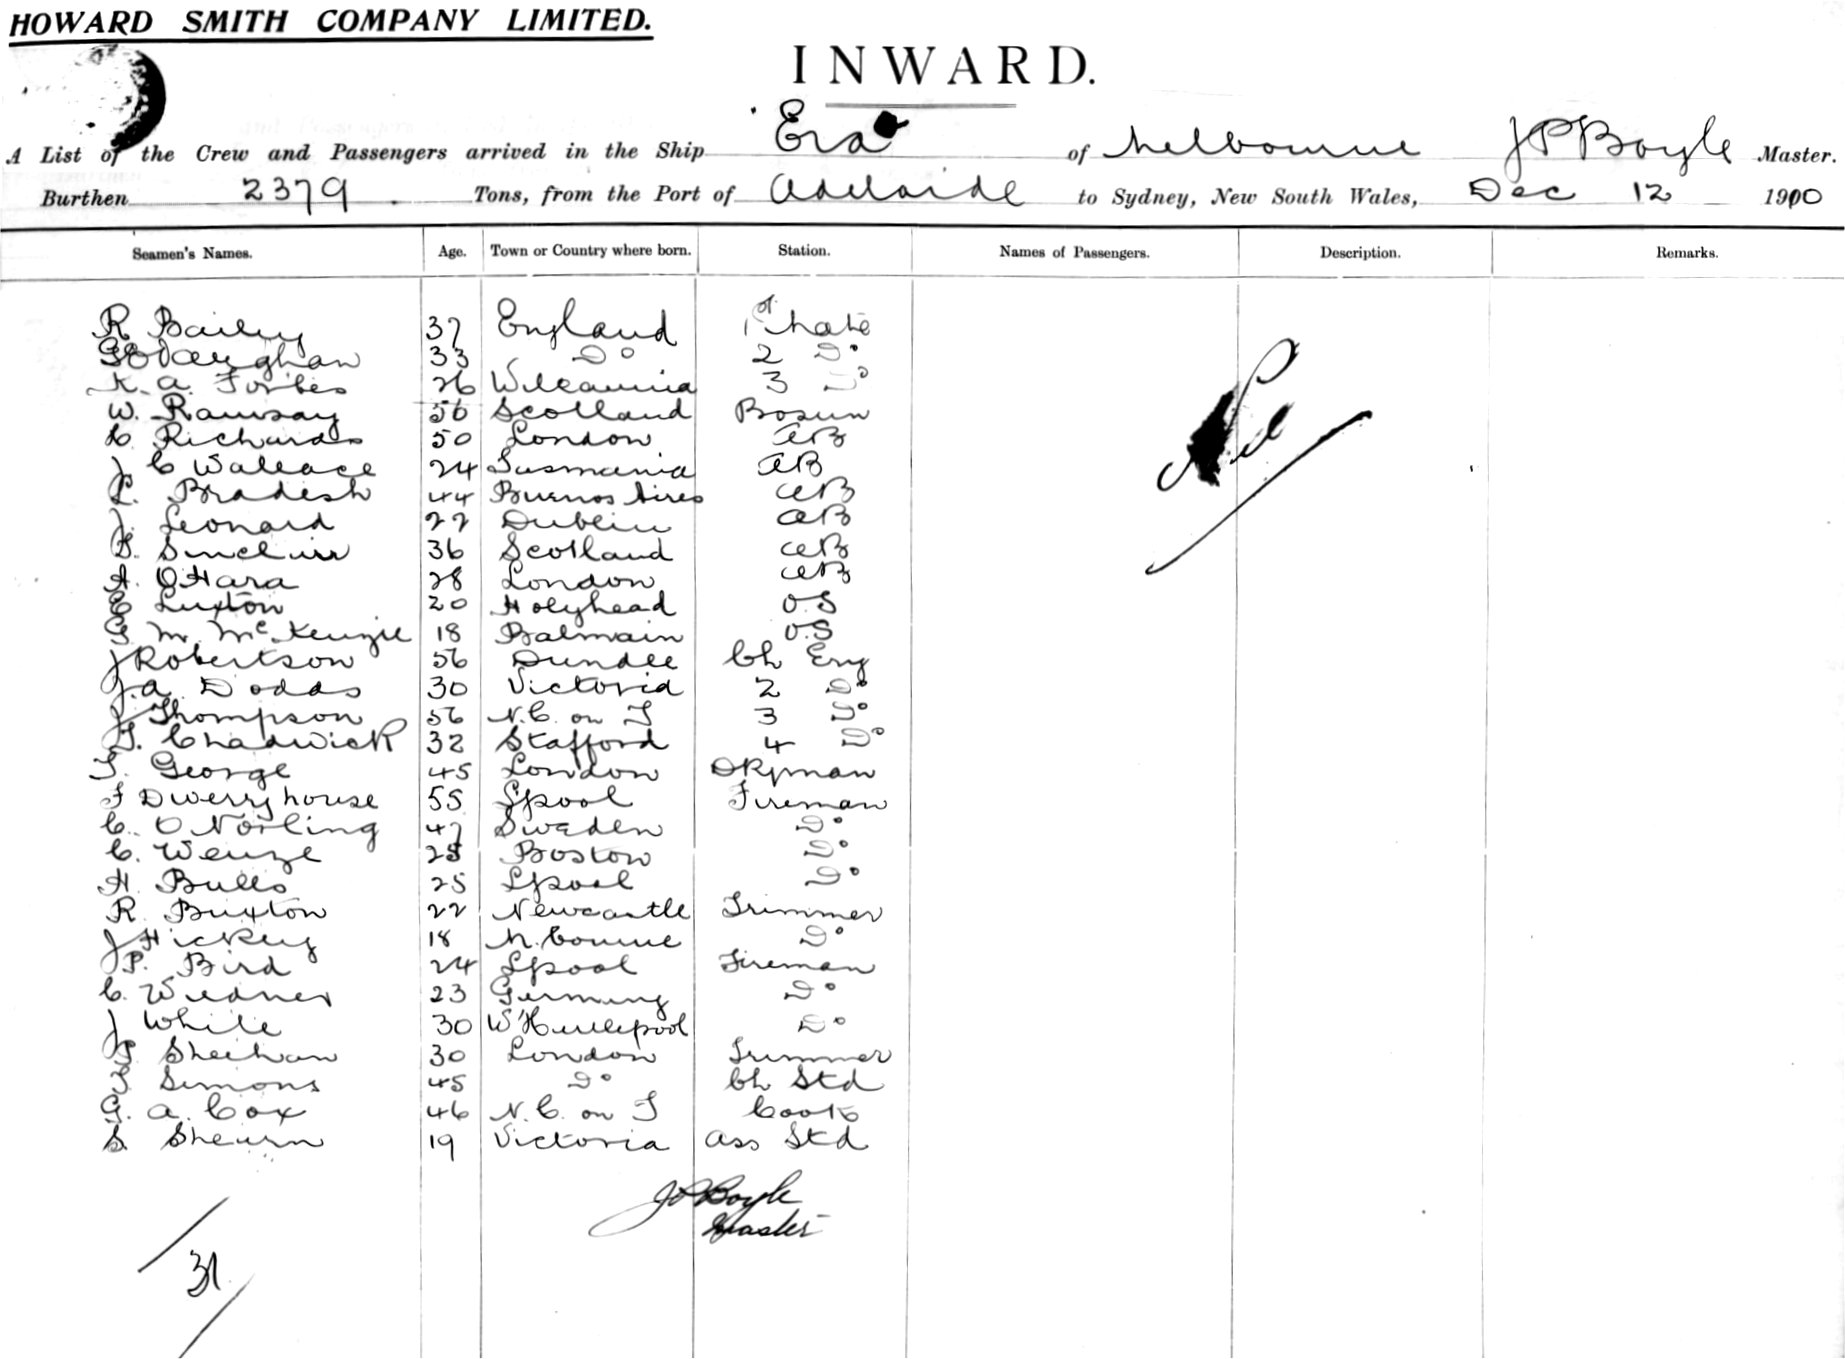 HOWARD SMITH COMPANY LIMITED.
INWARD.
A List of the Crew and Passengers arrived in the Ship Era of Melbourne J P Boyle Master.
Burthen 2379 Tons, from the Port of Adelaide to Sydney, New South Wales, Dec 12 1910
Seamen's Names. Age. Town or Country where born. Station. Names of Passengers. Description. Remarks.
R Bailey 37 England 1st Mate
Vaughan 33 Do 2 Do
K. A. Forbes 26 Wilcannia 3 Do
W. Ramsay 56 Scotland Bosun
C Richards 50 London AB
J C Wallace 24 Tasmania AB
L. Bradesh 44 Buenos Aires AB
J. Leonard 22 Dublin AB
Sinclair 36 Scotland AB
A. O'Hara 28 London AB
C Luxton 20 Holyhead O.S
G M McKenzie 18 Balmain O.S
J Robertson 56 Dundee Ch Eng
J. A. Dodds 30 Victoria 2 Do
J Thompson 56 N.C. on T 3 Do
T. Chadwick 32 Stafford 4 Do
T. George 45 London Dkyman
F Dwerryhouse 55 Lpool Fireman
C. O Norling 47 Sweden Do
C. Wenze 25 Boston Do
H Bulls 25 Lpool Do
R Buxton 22 Newcastle Trimmer
J Hickey 18 M.bourne Do
P. Bird 24 Lpool Fireman
C. Wiedner 23 Germany Do
J White 30 W Hartlepool Do
P. Sheehan 30 London Trimmer
T Simons 45 Do Ch Std
G. A. Cox 46 N.C. on T Cook
S. Shearn 19 Victoria Ass Std
Nil
J P Boyle
Master
31